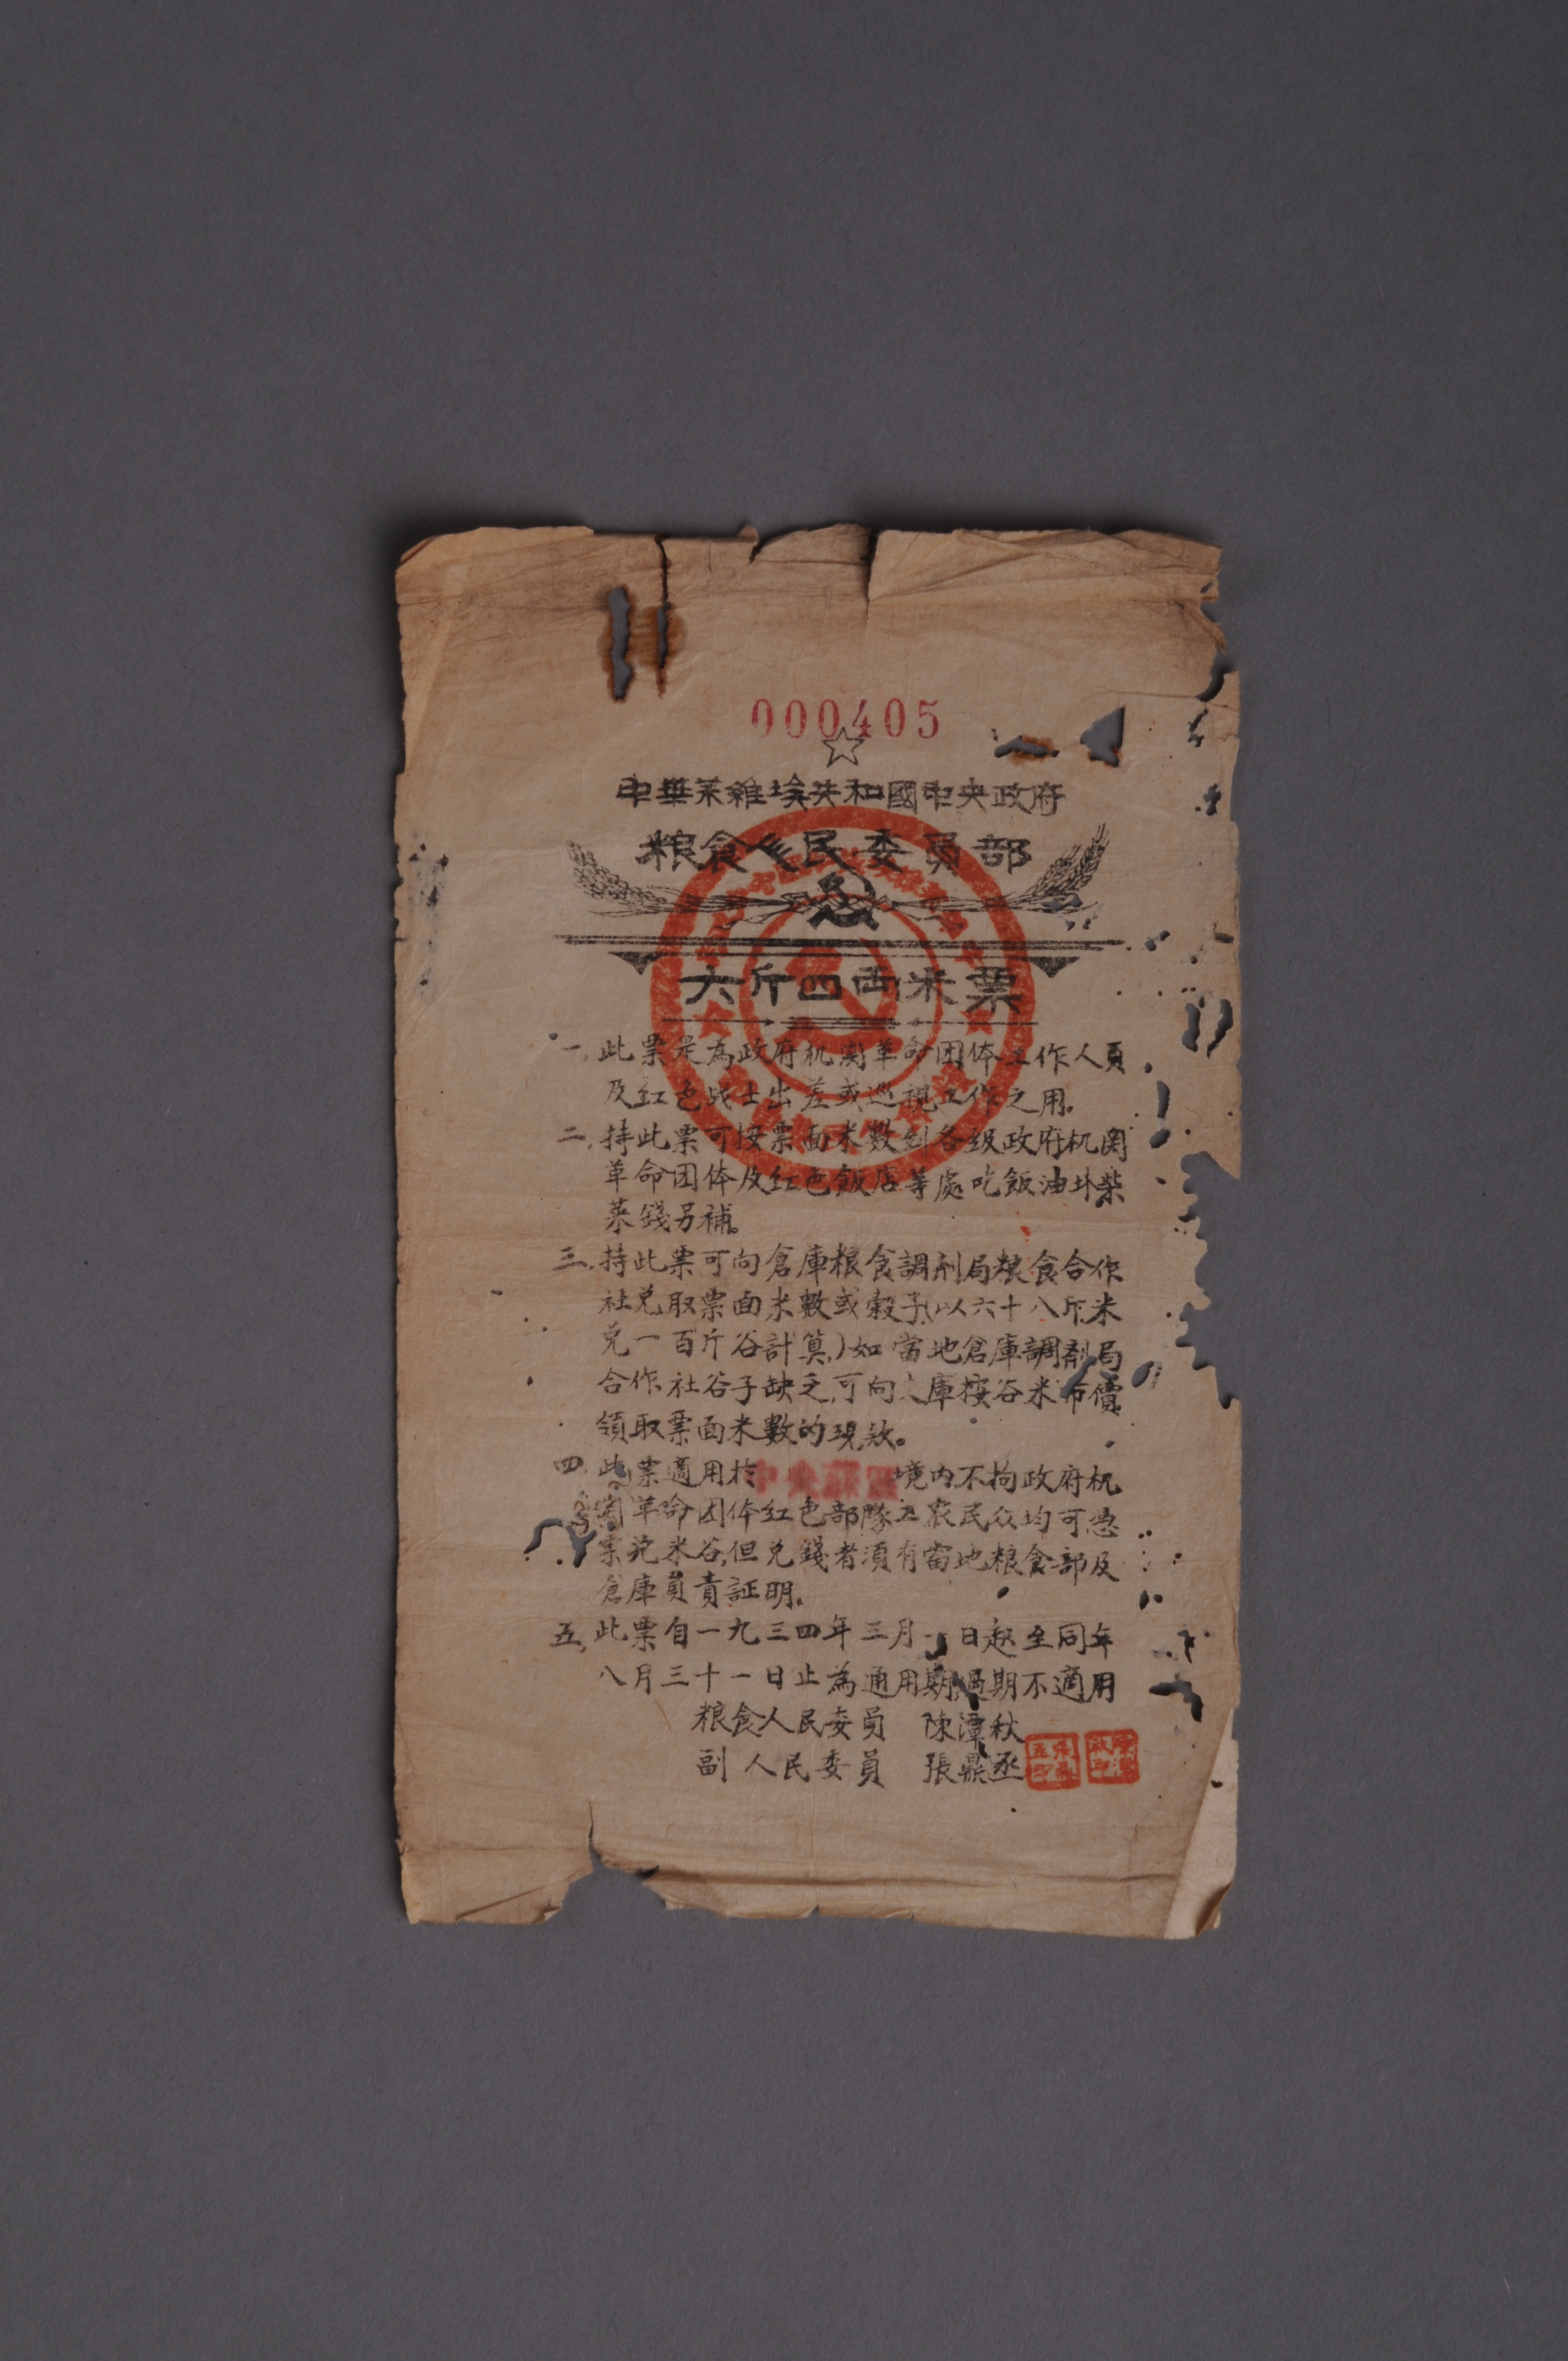 000405
中華苏維埃共和國中央政府
粮食人民委員部
六斤四両米票
一,此票是為政府机関革命团体工作人員
及红色战士出差或巡視工作之用。
二,持此票可按票面米數到各级政府机関
革命团体及红色飯店等處吃飯油卟柴
菜錢另補。
三,持此票可向倉庫粮食調剂局粮食合作
社兑取票面米數或穀子(以六十八斤米
兑一百斤谷計算,)如當地倉庫調剂局
合作社谷子缺乏,可向庫按谷米市價
領取票面米數的現欵。
四,此票適用於中央蘇區境内不拘政府机
関革命团体红色部隊工农民众均可憑
票兑米谷,但兑錢者須有當地粮食部及
倉庫負責証明。
五,此票自一九三四年三月一日起至同年
八月三十一日止為通用期過期不適用
粮食人民委員 陳潭秋
副人民委員 張鼎丞